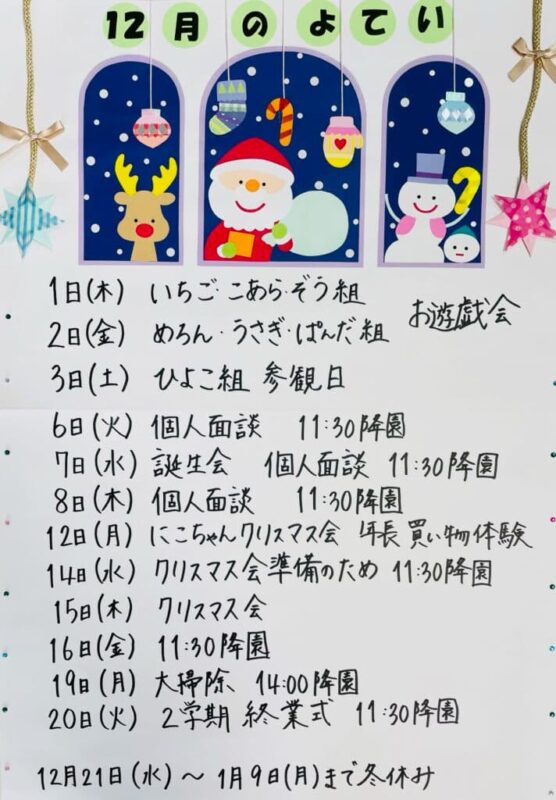 12月のよてい
1日(木) いちご・こあら・ぞう組
お遊戯会
2日(金) めろん・うさぎ・ぱんだ組
3日(土) ひよこ組 参観日
6日(火) 個人面談 11:30降園
7日(水) 誕生会 個人面談 11:30降園
8日(木) 個人面談 11:30降園
12日(月) にこちゃんクリスマス会 年長買い物体験
14日(水) クリスマス会準備のため 11:30降園
15日(木) クリスマス会
16日(金) 11:30降園
19日(月) 大掃除 14:00降園
20日(火) 2学期 終業式 11:30降園
12月21日(水) ～ 1月9日(月)まで冬休み